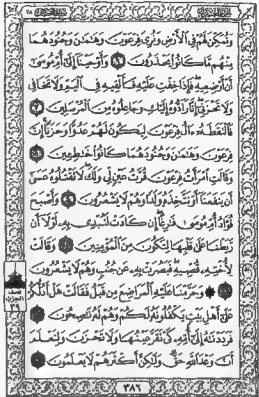 وَنُمَكِّنَ لَهُمْ فِي ٱلْأَرْضِ وَنُرِيَ فِرْعَوْنَ وَهَٰمَٰنَ وَجُنُودَهُمَا
مِنْهُم مَّا كَانُوا۟ يَحْذَرُونَ وَأَوْحَيْنَآ إِلَىٰٓ أُمِّ مُوسَىٰٓ
أَنْ أَرْضِعِيهِ فَإِذَا خِفْتِ عَلَيْهِ فَأَلْقِيهِ فِي ٱلْيَمِّ وَلَا تَخَافِي
وَلَا تَحْزَنِىٓ إِنَّا رَآدُّوهُ إِلَيْكِ وَجَاعِلُوهُ مِنَ ٱلْمُرْسَلِينَ
فَٱلْتَقَطَهُۥٓ ءَالُ فِرْعَوْنَ لِيَكُونَ لَهُمْ عَدُوًّا وَحَزَنًا إِنَّ
فِرْعَوْنَ وَهَٰمَٰنَ وَجُنُودَهُمَا كَانُوا۟ خَٰطِـِٔينَ
وَقَالَتِ ٱمْرَأَتُ فِرْعَوْنَ قُرَّتُ عَيْنٍ لِّى وَلَكَ لَا تَقْتُلُوهُ عَسَىٰٓ
أَن يَنفَعَنَآ أَوْ نَتَّخِذَهُۥ وَلَدًا وَهُمْ لَا يَشْعُرُونَ وَأَصْبَحَ
فُؤَادُ أُمِّ مُوسَىٰ فَٰرِغًا إِن كَادَتْ لَتُبْدِى بِهِۦ لَوْلَآ أَن
رَّبَطْنَا عَلَىٰ قَلْبِهَا لِتَكُونَ مِنَ ٱلْمُؤْمِنِينَ وَقَالَتْ
لِأُخْتِهِۦ قُصِّيهِ فَبَصُرَتْ بِهِۦ عَن جُنُبٍ وَهُمْ لَا يَشْعُرُونَ
وَحَرَّمْنَا عَلَيْهِ ٱلْمَرَاضِعَ مِن قَبْلُ فَقَالَتْ هَلْ أَدُلُّكُمْ
عَلَىٰٓ أَهْلِ بَيْتٍ يَكْفُلُونَهُۥ لَكُمْ وَهُمْ لَهُۥ نَٰصِحُونَ
فَرَدَدْنَٰهُ إِلَىٰٓ أُمِّهِۦ كَىْ تَقَرَّ عَيْنُهَا وَلَا تَحْزَنَ وَلِتَعْلَمَ
أَنَّ وَعْدَ ٱللَّهِ حَقٌّ وَلَٰكِنَّ أَكْثَرَهُمْ لَا يَعْلَمُونَ
نصف
الحزب
٣٩
٣٨٦